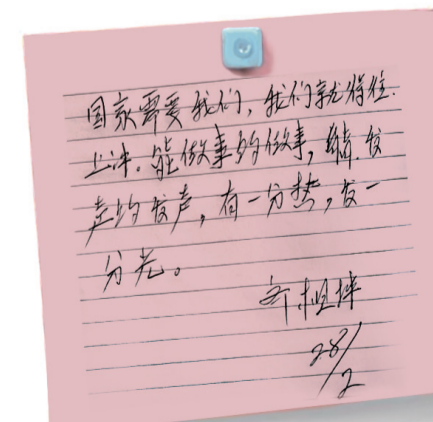 国家需要我们，我们就得往
上冲。能做事的做事，能发
声的发声，有一分热，发一
分光。
齐祖坤
28/2